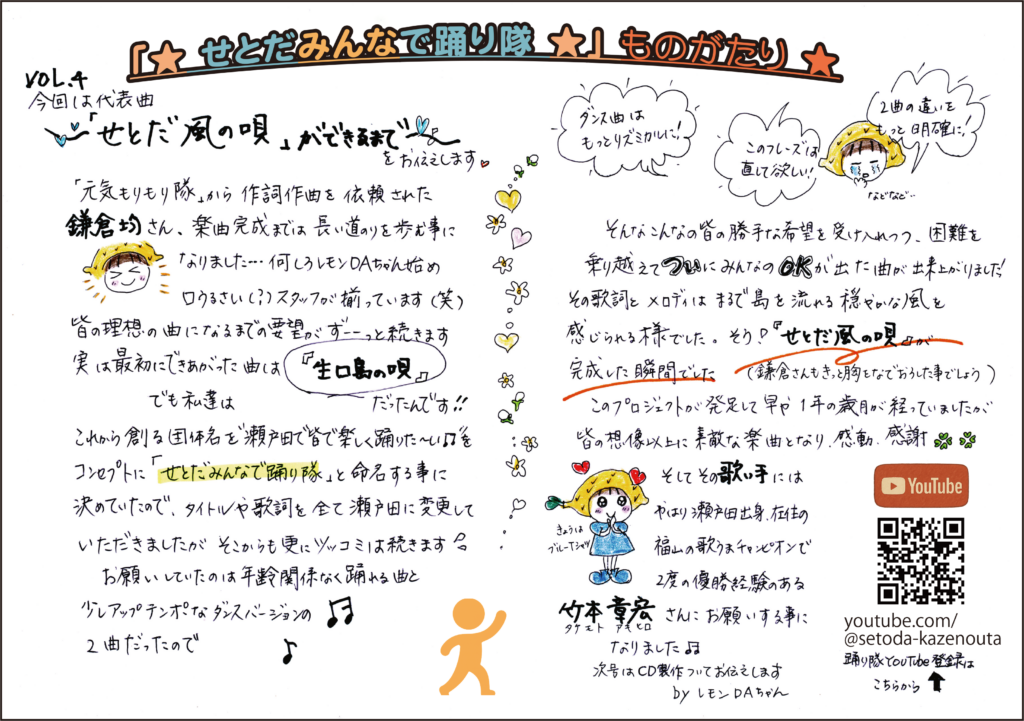 「★ せとだみんなで踊り隊 ★」ものがたり ★
VOL.4
今回は代表曲
「せとだ風の唄」ができるまで
をお伝えします
「元気もりもり隊」から作詞作曲を依頼された
鎌倉均さん、楽曲完成までは長い道のりを歩む事に
なりました…何しろレモンDAちゃん始め
口うるさい(?)スタッフが揃っています(笑)
皆の理想の曲になるまでの要望がずーーっと続きます
実は最初にできあがった曲は
『生口島の唄』
だったんです!!
でも私達は
これから創る団体名を"瀬戸田で皆で楽しく踊りた〜い♫"を
コンセプトに「せとだみんなで踊り隊」と命名する事に
決めていたので、タイトルや歌詞を全て瀬戸田に変更して
いただきましたが そこからも更にツッコミは続きます
お願いしていたのは年齢関係なく踊れる曲と
少しアップテンポなダンスバージョンの
2曲だったので
ダンス曲は
もっとリズミカルに!
このフレーズは
直して欲しい!!
2曲の違いを
もっと明確に!
などなど…
そんなこんなの皆の勝手な希望を受け入れつつ、困難を
乗り越えてついにみんなのOKが出た曲が出来上がりました!
その歌詞とメロディはまるで島を流れる穏やかな風を
感じられる様でした。そう!『せとだ風の唄』が
完成した瞬間でした
(鎌倉さんもきっと胸をなでおろした事でしょう)
このプロジェクトが発足して早や1年の歳月が経っていましたが
皆の想像以上に素敵な楽曲となり、感動、感謝
きょうは
ブルーTシャツ
そしてその歌い手には
やはり瀬戸田出身、在住の
福山の歌うまチャンピオンで
2度の優勝経験のある
竹本章宏さんにお願いする事に
タケモト アキヒロ
なりました♫
次号はCD製作ついてお伝えします
by レモンDAちゃん
YouTube
youtube.com/
@setoda-kazenouta
踊り隊YouTube登録は
こちらから